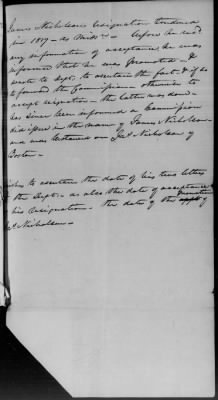 James Nicholson resignation tendered
in 1809 - as Mids. - before he rec'd
any information of acceptance he was
informed that he was promoted - &
wrote to Dept. to ascertain the fact & if so
to forward the Commission - otherwise to
accept resignation - the latter was done -
has since been informed a Commission
did issue in the name of James Nicholson
and was bestowed on Jas. Nicholson of
Boston -
wishes to ascertain the date of his two letters
to the Dept. - as also the date of acceptance
of his resignation - the date of the promotion of
Jas. Nicholson -